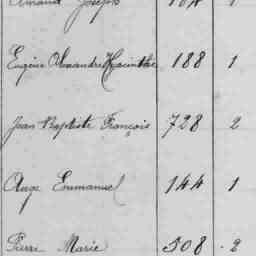 Armand Joseph 184 1
Eugène Alexandre Hyacinthe 188 1
Jean Baptiste François 728 2
Ange Emmanuel 144 1
Pierre Marie 508 2